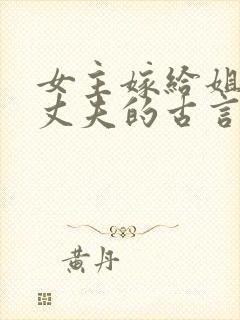 女主嫁给姐
丈夫的古言
黄丹